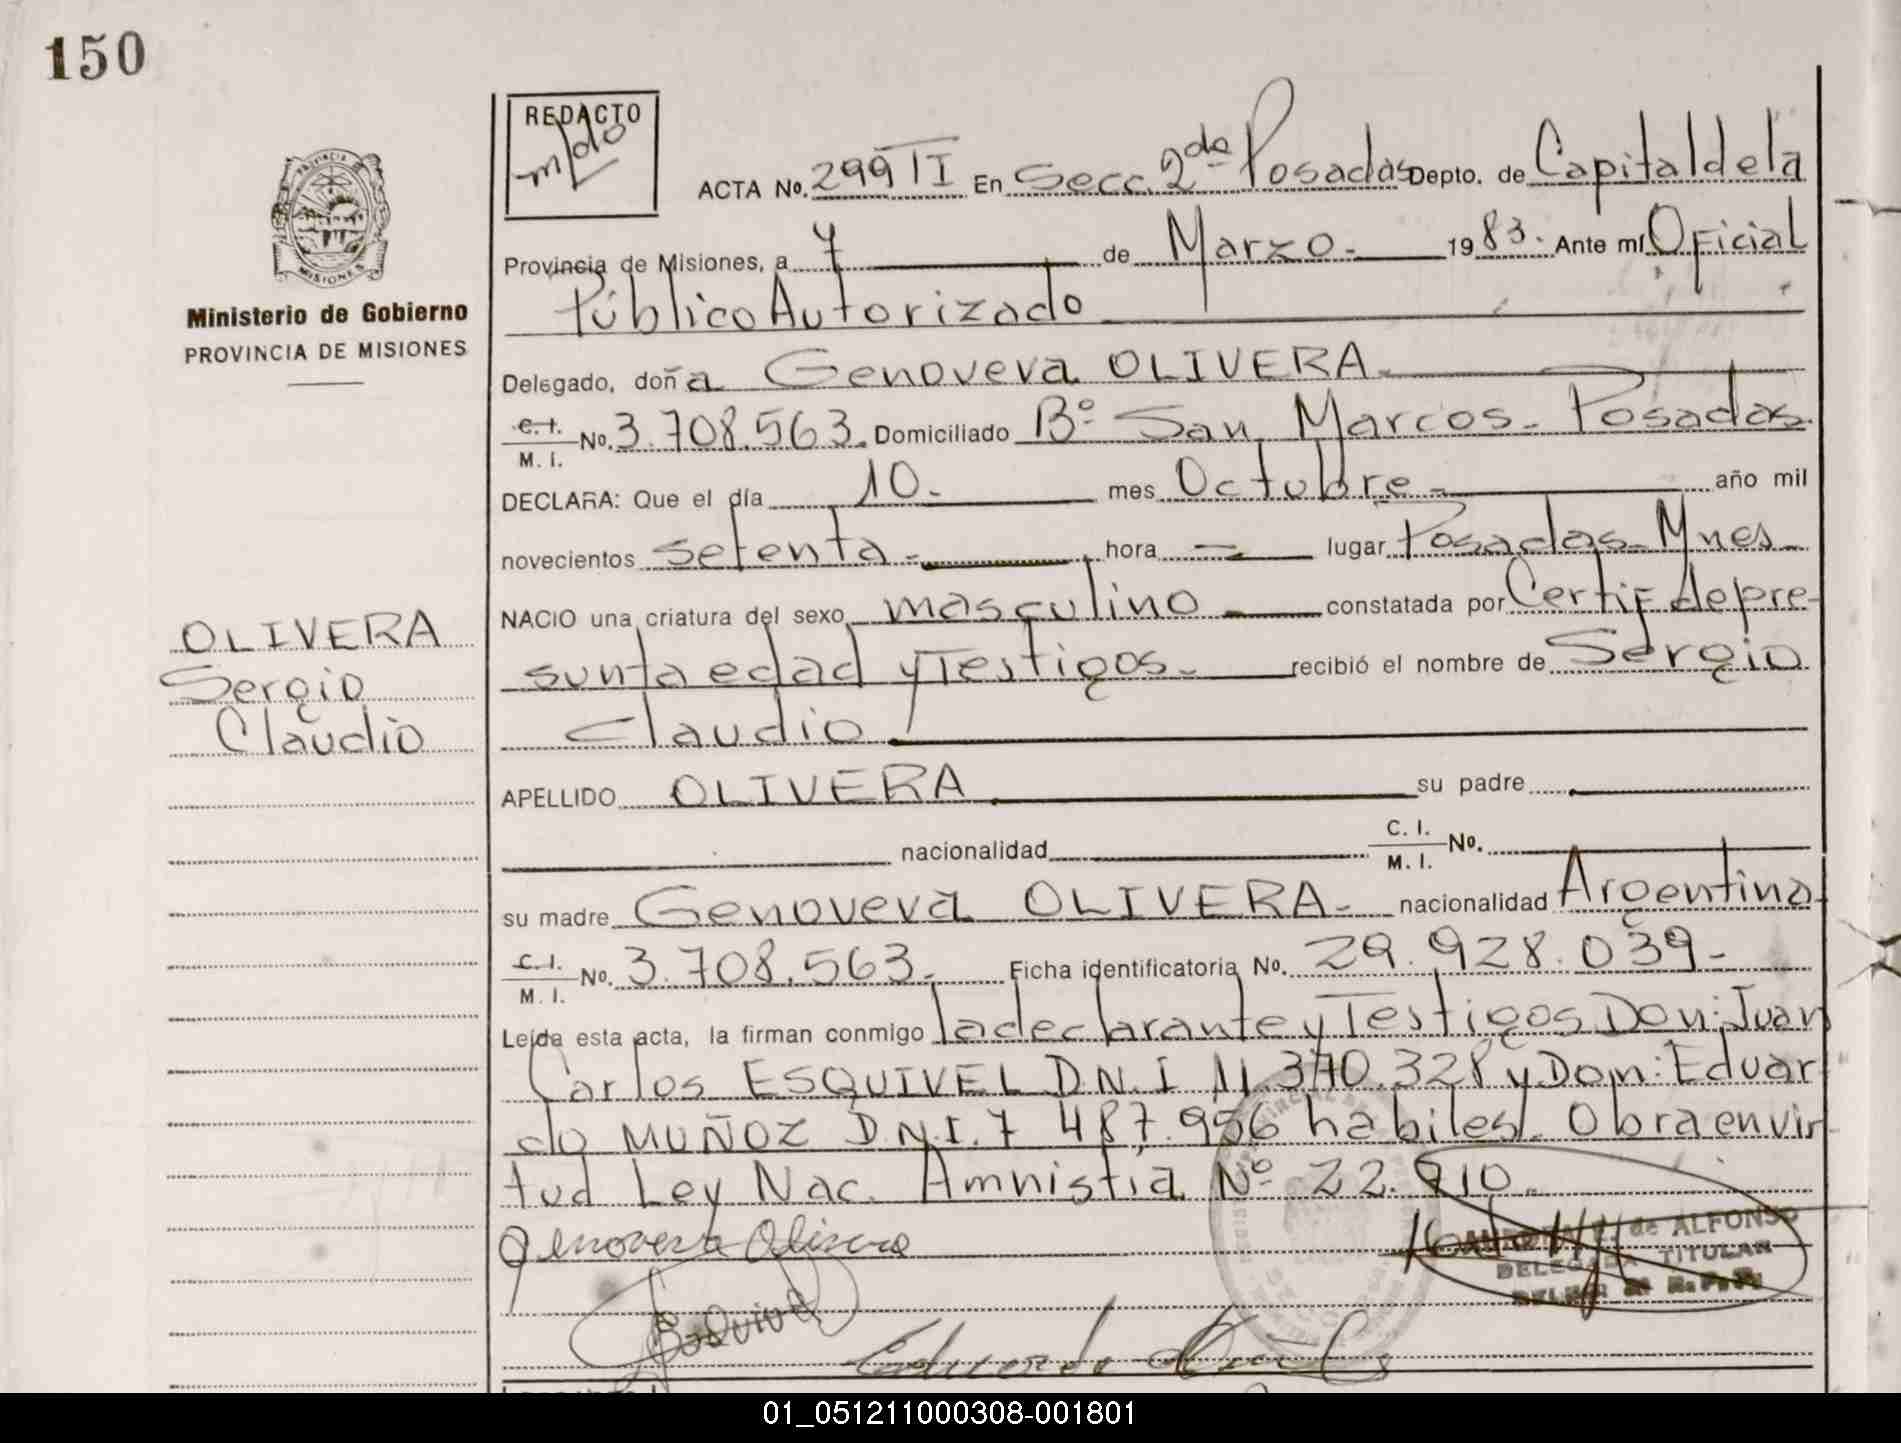 150
REDACTO
ACTA No. 299 TI En Secc. 2da Posadas Depto. de Capital de la
Provincia de Misiones, a 7 de Marzo. 1983. Ante mí Oficial
Público Autorizado
Ministerio de Gobierno
PROVINCIA DE MISIONES
Delegado, doña Genoveva OLIVERA
C.I. M. I. No. 3.708.563. Domiciliado Bº San Marcos. Posadas.
DECLARA: Que el día 10. mes Octubre año mil
novecientos setenta. hora — lugar Posadas. Mnes
NACIO una criatura del sexo masculino constatada por Certif de pre-
sunta edad y Testigos. recibió el nombre de Sergio
Claudio
OLIVERA
Sergio
Claudio
APELLIDO OLIVERA su padre
nacionalidad C. I. M. I. No.
su madre Genoveva OLIVERA. nacionalidad Argentina
C.I. M. I. No. 3.708.563. Ficha identificatoria No. 29.928.039-
Leída esta acta, la firman conmigo la declarante y Testigos Don: Juan
Carlos ESQUIVEL D.N.I 11.370.328 y Don: Eduar
do MUÑOZ D.N.I. 7 487.956 habiles. Obra en vir
tud Ley Nac. Amnistia Nº 22.910.
Genoveva Olivera
de ALFONSO
DELEGADA TITULAR
Esquivel
Eduardo
01_051211000308-001801